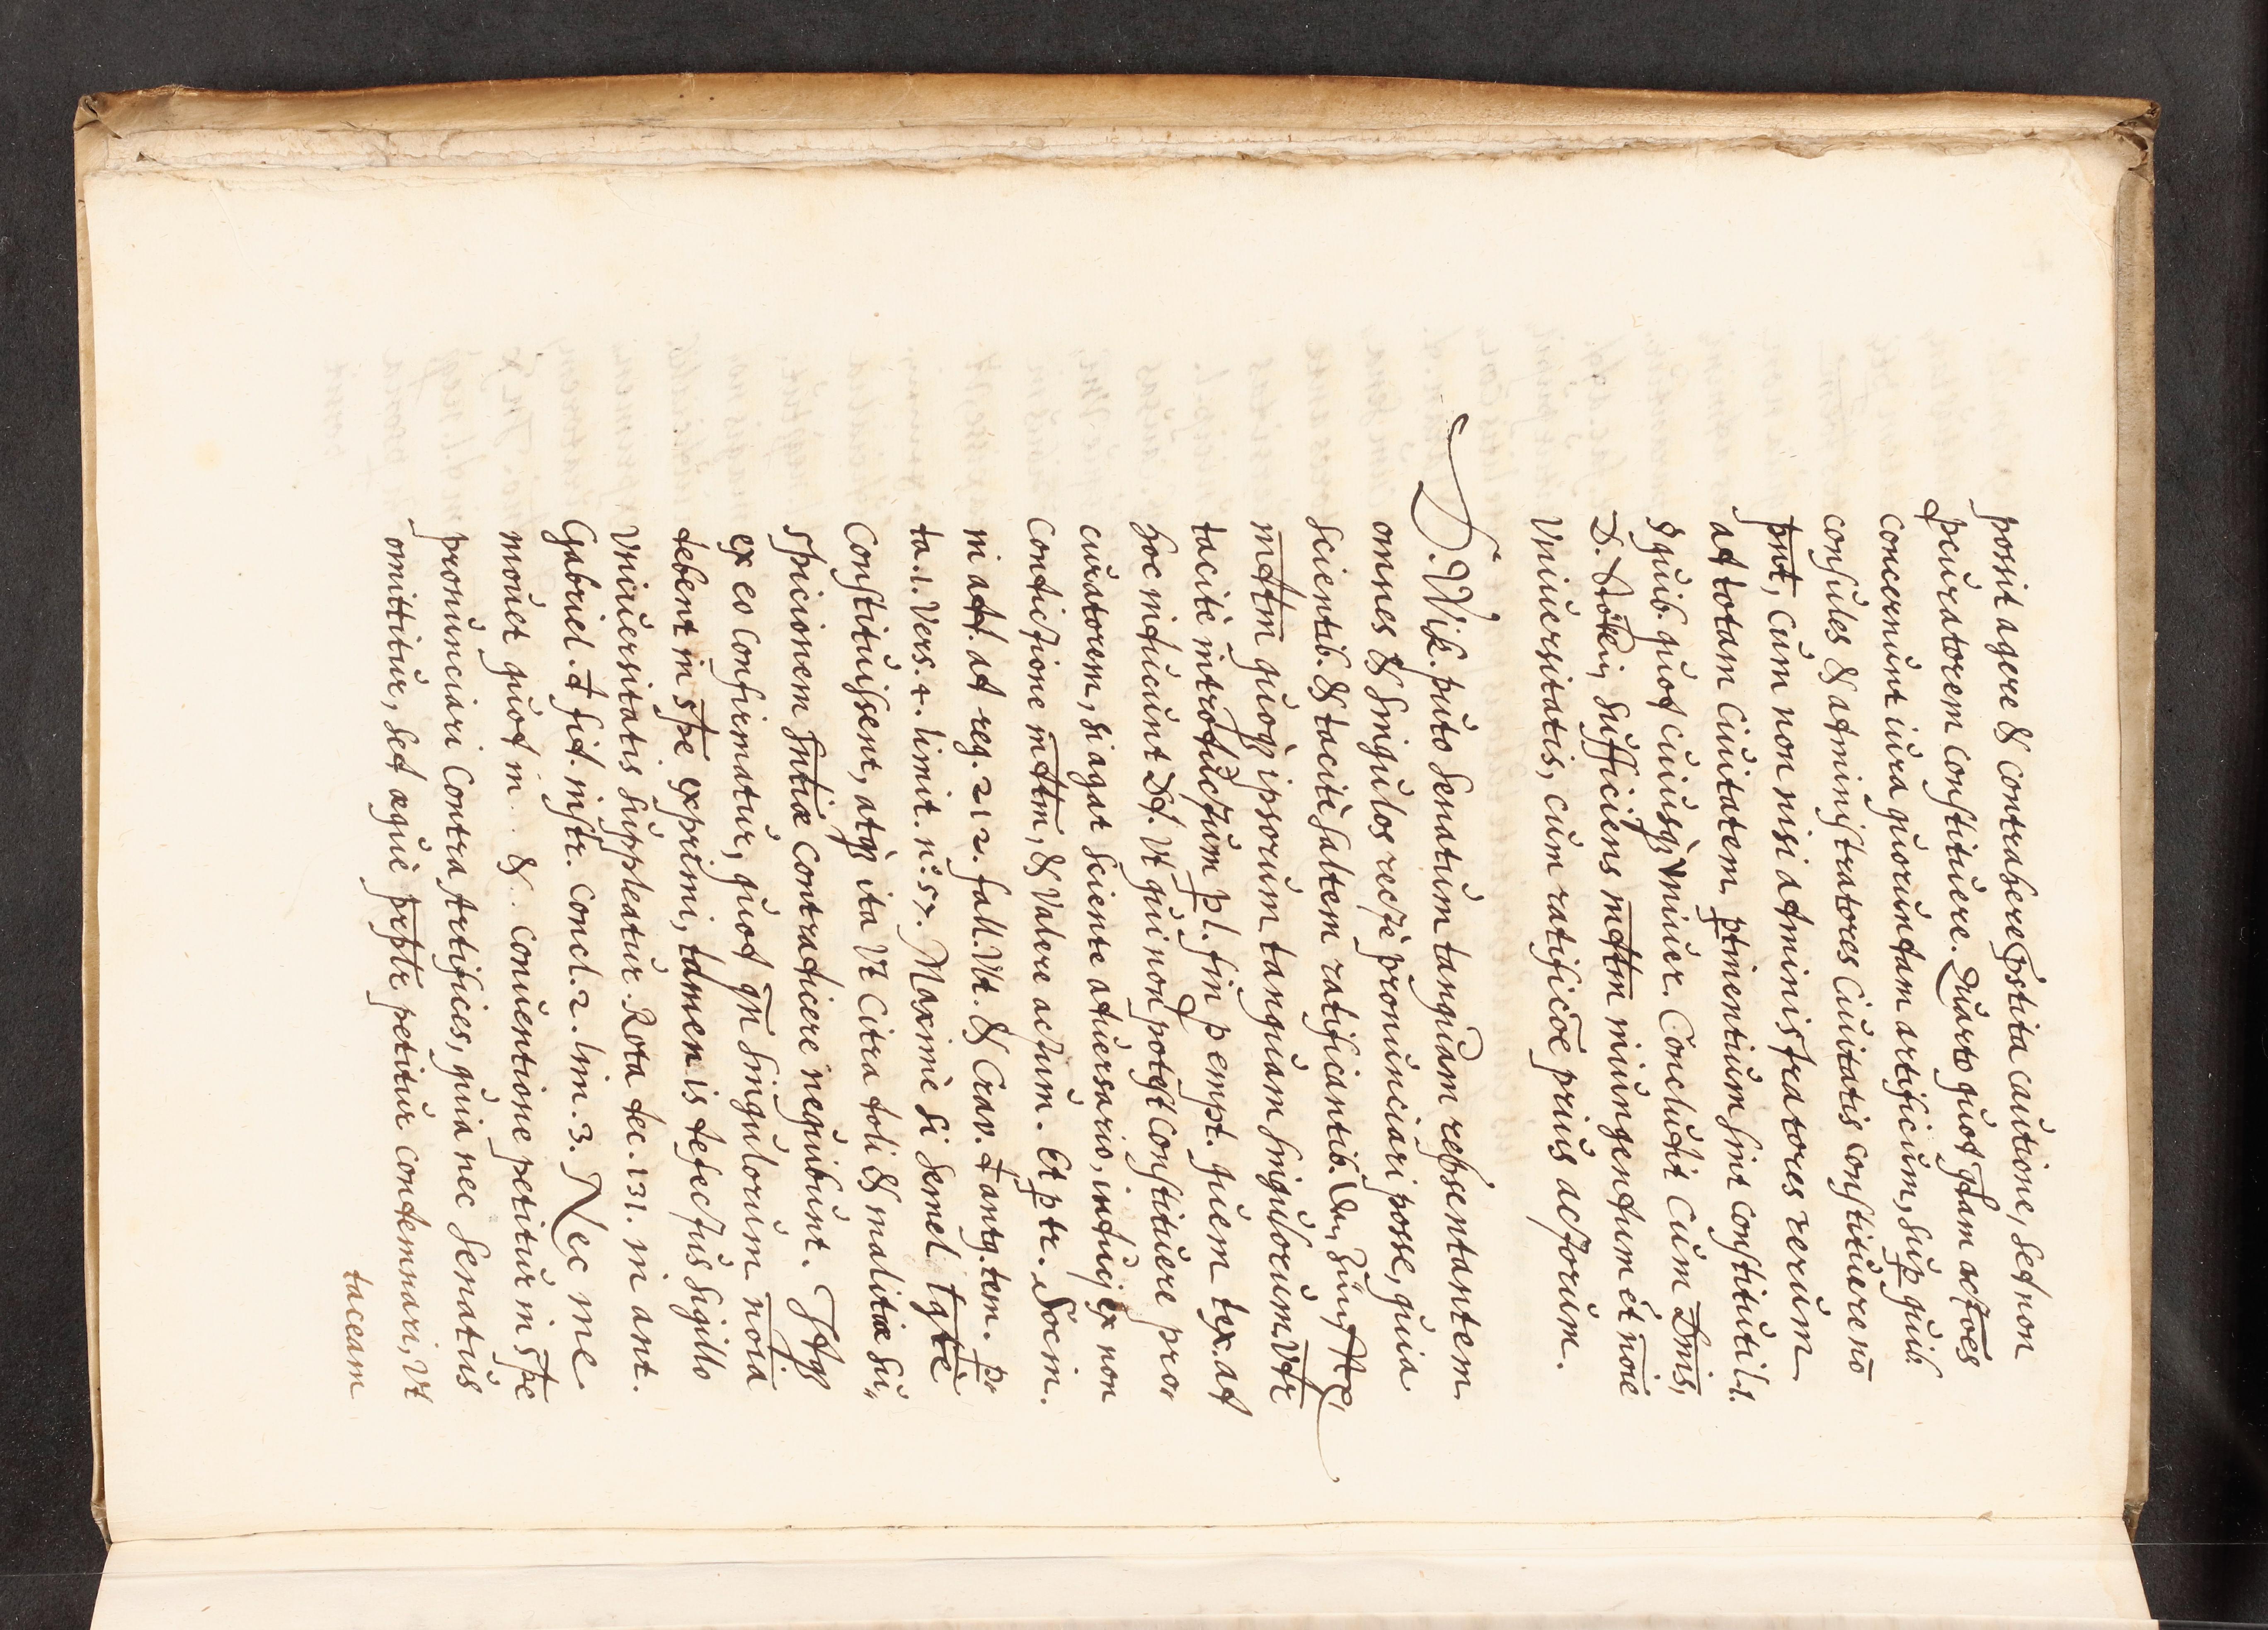 possit agere & contrahere p̄stita caŭtione, sed non
pcŭratorem constitŭere. Qŭarto qŭod qdam act̄oes
concernŭnt iŭra qŭorŭndam artificŭm, sŭp qŭib.
consŭles & administratores Ciŭitatis constitŭere nō
pn̄t, Cŭm non nisi administratores rerŭm
ad totam Ciŭitatem ptinentiŭm sint constitŭti l. 1.
§ qŭib. qŭod cŭiŭsq; vniŭer. Conclŭdit Cŭm Dn̄is,
D. sŭfficiens md̄tm iniŭngendŭm et no͞ie
Vniŭersitatis, cŭm ratific͞oe priŭs actorŭm.
D. Vik. pŭto Senatŭm tanqŭam repsentantem
omnes & singŭlos rectè pronŭnciari posse, qŭia
scientib. & tacitè saltem ratificantib.
md̄tm qŭoq; ipsorŭm tanqŭam singŭlorŭm vdr̄
tacitè introdŭctŭm p l. fin pempt. qŭem tex. ad
hoc indŭcŭnt Dd. Vt qŭi non potest constitŭere pro-
cŭratorem, si agat sciente adŭersario, indŭcj ex non
contictione md̄tm, & Valere actŭm. Et p tr. Socin.
in add. ad reg. 212. fall. Vlt. & Crav. d antq. tem. p-
ta. 1. Vers. 4. limit. n. 57. Maximè si semel tqtè
Constitŭissent, atq; ita Vt Citra doli & malitiæ sŭ-
spicionem sn̄tiæ contradicere neqŭibŭnt. Itaq;
ex eo Confirmatŭr, qŭod qn̄ singŭlorŭm no͞ia
debent in sp̄e exprimi, tamen is defectŭs sigillo
Vniŭersitatis sŭppleatŭr. Rota dec. 131. in ant.
Gabriel. d fid. instr. Concl. 2. lim. 3. Nec me
moŭet qŭod in .. & .. conŭentione petitŭr in sp̄e
pronŭnciari Contra Artifices, qŭia nec Senatŭs
omittitŭr, sed æqŭè pr̄ptr petitŭr condemnari, Vt
taceam